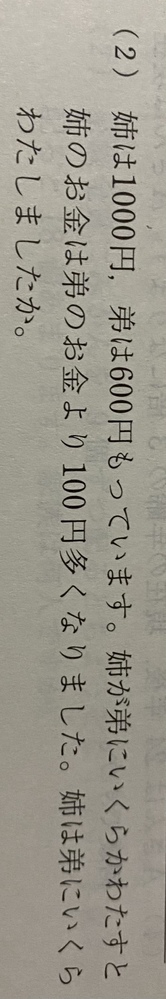 (2) 姉は1000円，弟は600円もっています。姉が弟にいくらかわたすと
姉のお金は弟のお金より100円多くなりました。姉は弟にいくら
わたしましたか。